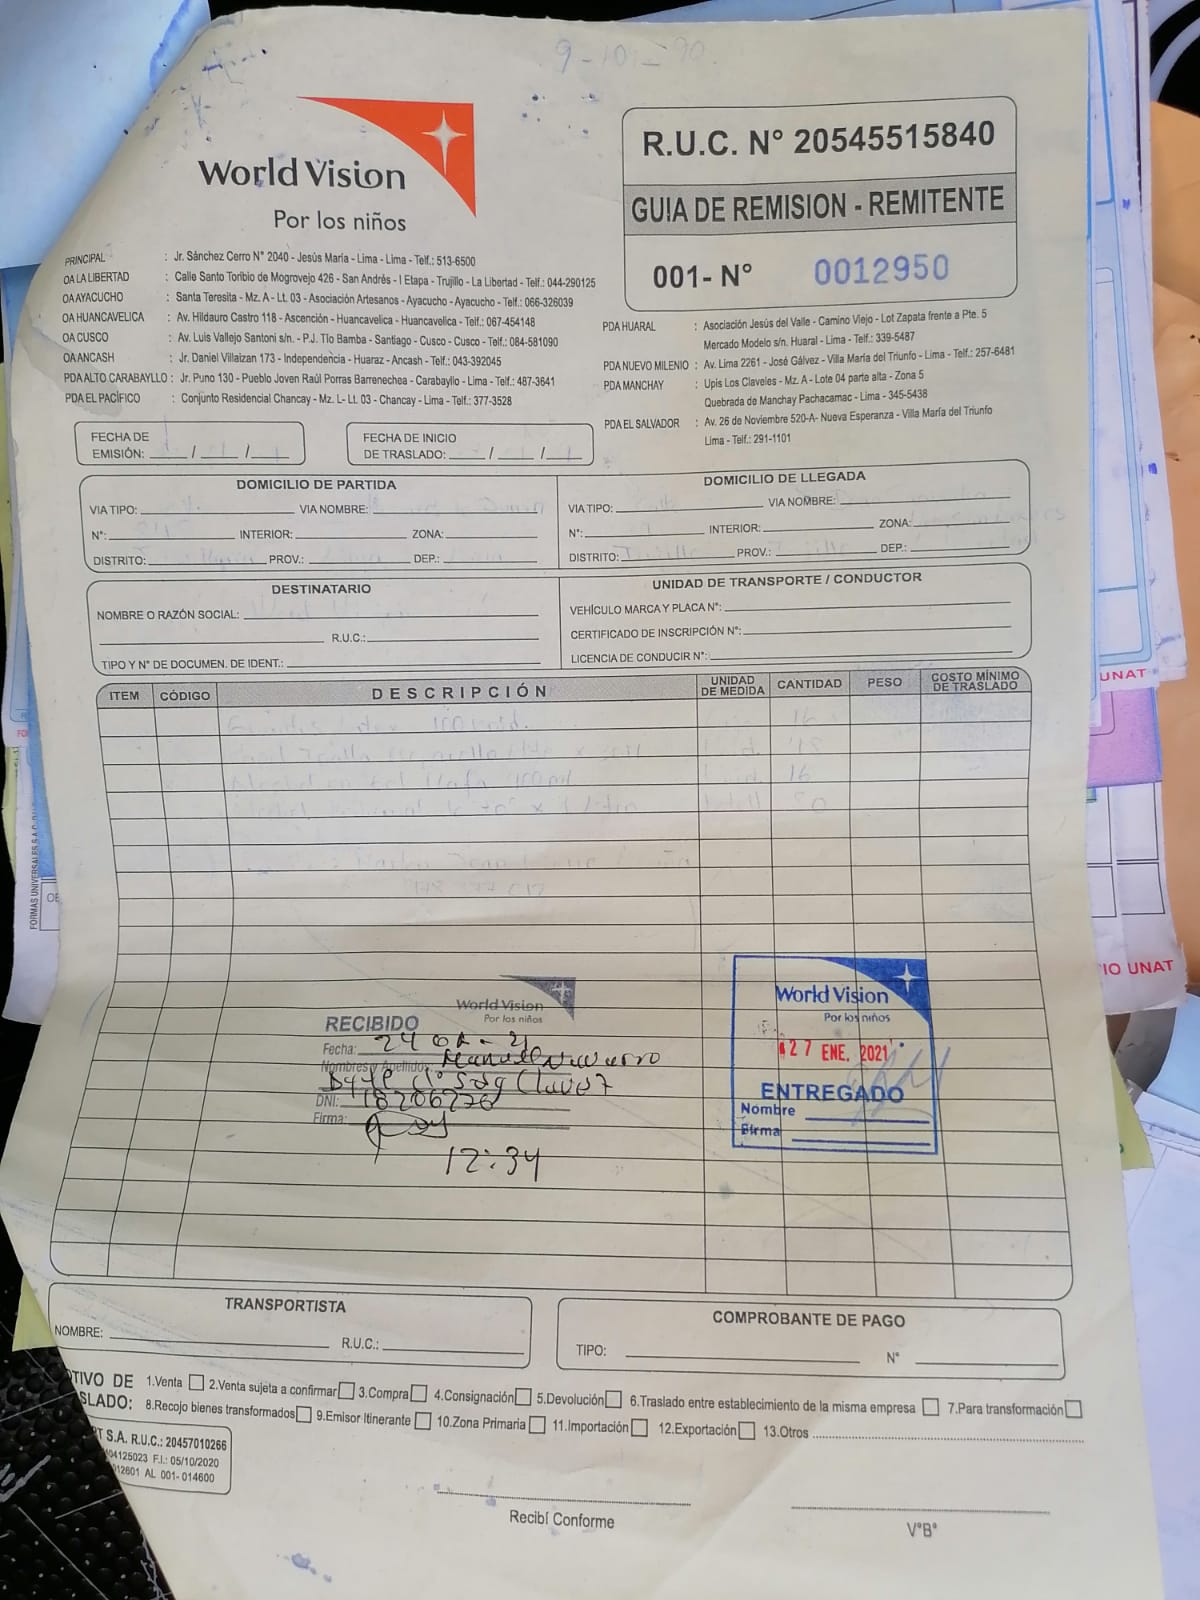 World Vision
Por los niños
R.U.C. N° 20545515840
GUIA DE REMISION - REMITENTE
001- N° 0012950
PRINCIPAL : Jr. Sánchez Cerro N° 2040 - Jesús María - Lima - Lima - Telf.: 513-6500
OA LA LIBERTAD : Calle Santo Toribio de Mogrovejo 426 - San Andrés - I Etapa - Trujillo - La Libertad - Telf.: 044-290125
OA AYACUCHO : Santa Teresita - Mz. A - Lt. 03 - Asociación Artesanos - Ayacucho - Ayacucho - Telf.: 066-326039
OA HUANCAVELICA : Av. Hildauro Castro 118 - Ascención - Huancavelica - Huancavelica - Telf.: 067-454148
OA CUSCO : Av. Luis Vallejo Santoni s/n. - P.J. Tío Bamba - Santiago - Cusco - Cusco - Telf.: 084-581090
OA ANCASH : Jr. Daniel Villaizan 173 - Independencia - Huaraz - Ancash - Telf.: 043-392045
PDA ALTO CARABAYLLO : Jr. Puno 130 - Pueblo Joven Raúl Porras Barrenechea - Carabayllo - Lima - Telf.: 487-3641
PDA EL PACÍFICO : Conjunto Residencial Chancay - Mz. L- Lt. 03 - Chancay - Lima - Telf.: 377-3528
PDA HUARAL : Asociación Jesús del Valle - Camino Viejo - Lot Zapata frente a Pte. 5
Mercado Modelo s/n. Huaral - Lima - Telf.: 339-5487
PDA NUEVO MILENIO : Av. Lima 2261 - José Gálvez - Villa María del Triunfo - Lima - Telf.: 257-6481
PDA MANCHAY : Upis Los Claveles - Mz. A - Lote 04 parte alta - Zona 5
Quebrada de Manchay Pachacamac - Lima - 345-5438
PDA EL SALVADOR : Av. 26 de Noviembre 520-A- Nueva Esperanza - Villa María del Triunfo
Lima - Telf.: 291-1101
FECHA DE
EMISIÓN: / /
FECHA DE INICIO
DE TRASLADO: / /
DOMICILIO DE PARTIDA
VIA TIPO: VIA NOMBRE:
N°: INTERIOR: ZONA:
DISTRITO: PROV.: DEP.:
DOMICILIO DE LLEGADA
VIA TIPO: VIA NOMBRE:
N°: INTERIOR: ZONA:
DISTRITO: PROV.: DEP.:
DESTINATARIO
NOMBRE O RAZÓN SOCIAL:
R.U.C.:
TIPO Y N° DE DOCUMEN. DE IDENT.:
UNIDAD DE TRANSPORTE / CONDUCTOR
VEHÍCULO MARCA Y PLACA N°:
CERTIFICADO DE INSCRIPCIÓN N°:
LICENCIA DE CONDUCIR N°:
ITEM CÓDIGO DESCRIPCIÓN UNIDAD DE MEDIDA CANTIDAD PESO COSTO MÍNIMO DE TRASLADO
World Vision
Por los niños
RECIBIDO
Fecha:
Nombres y Apellidos:
DNI: 18206276
Firma:
12:34
World Vision
Por los niños
27 ENE. 2021
ENTREGADO
Nombre
Firma
TRANSPORTISTA
NOMBRE: R.U.C.:
COMPROBANTE DE PAGO
TIPO: N°
TIVO DE
SLADO:
1.Venta 2.Venta sujeta a confirmar 3.Compra 4.Consignación 5.Devolución 6.Traslado entre establecimiento de la misma empresa 7.Para transformación
8.Recojo bienes transformados 9.Emisor Itinerante 10.Zona Primaria 11.Importación 12.Exportación 13.Otros
T S.A. R.U.C.: 20457010266
04125023 F.I.: 05/10/2020
012601 AL 001- 014600
Recibí Conforme
V°B°
UNAT
IO UNAT